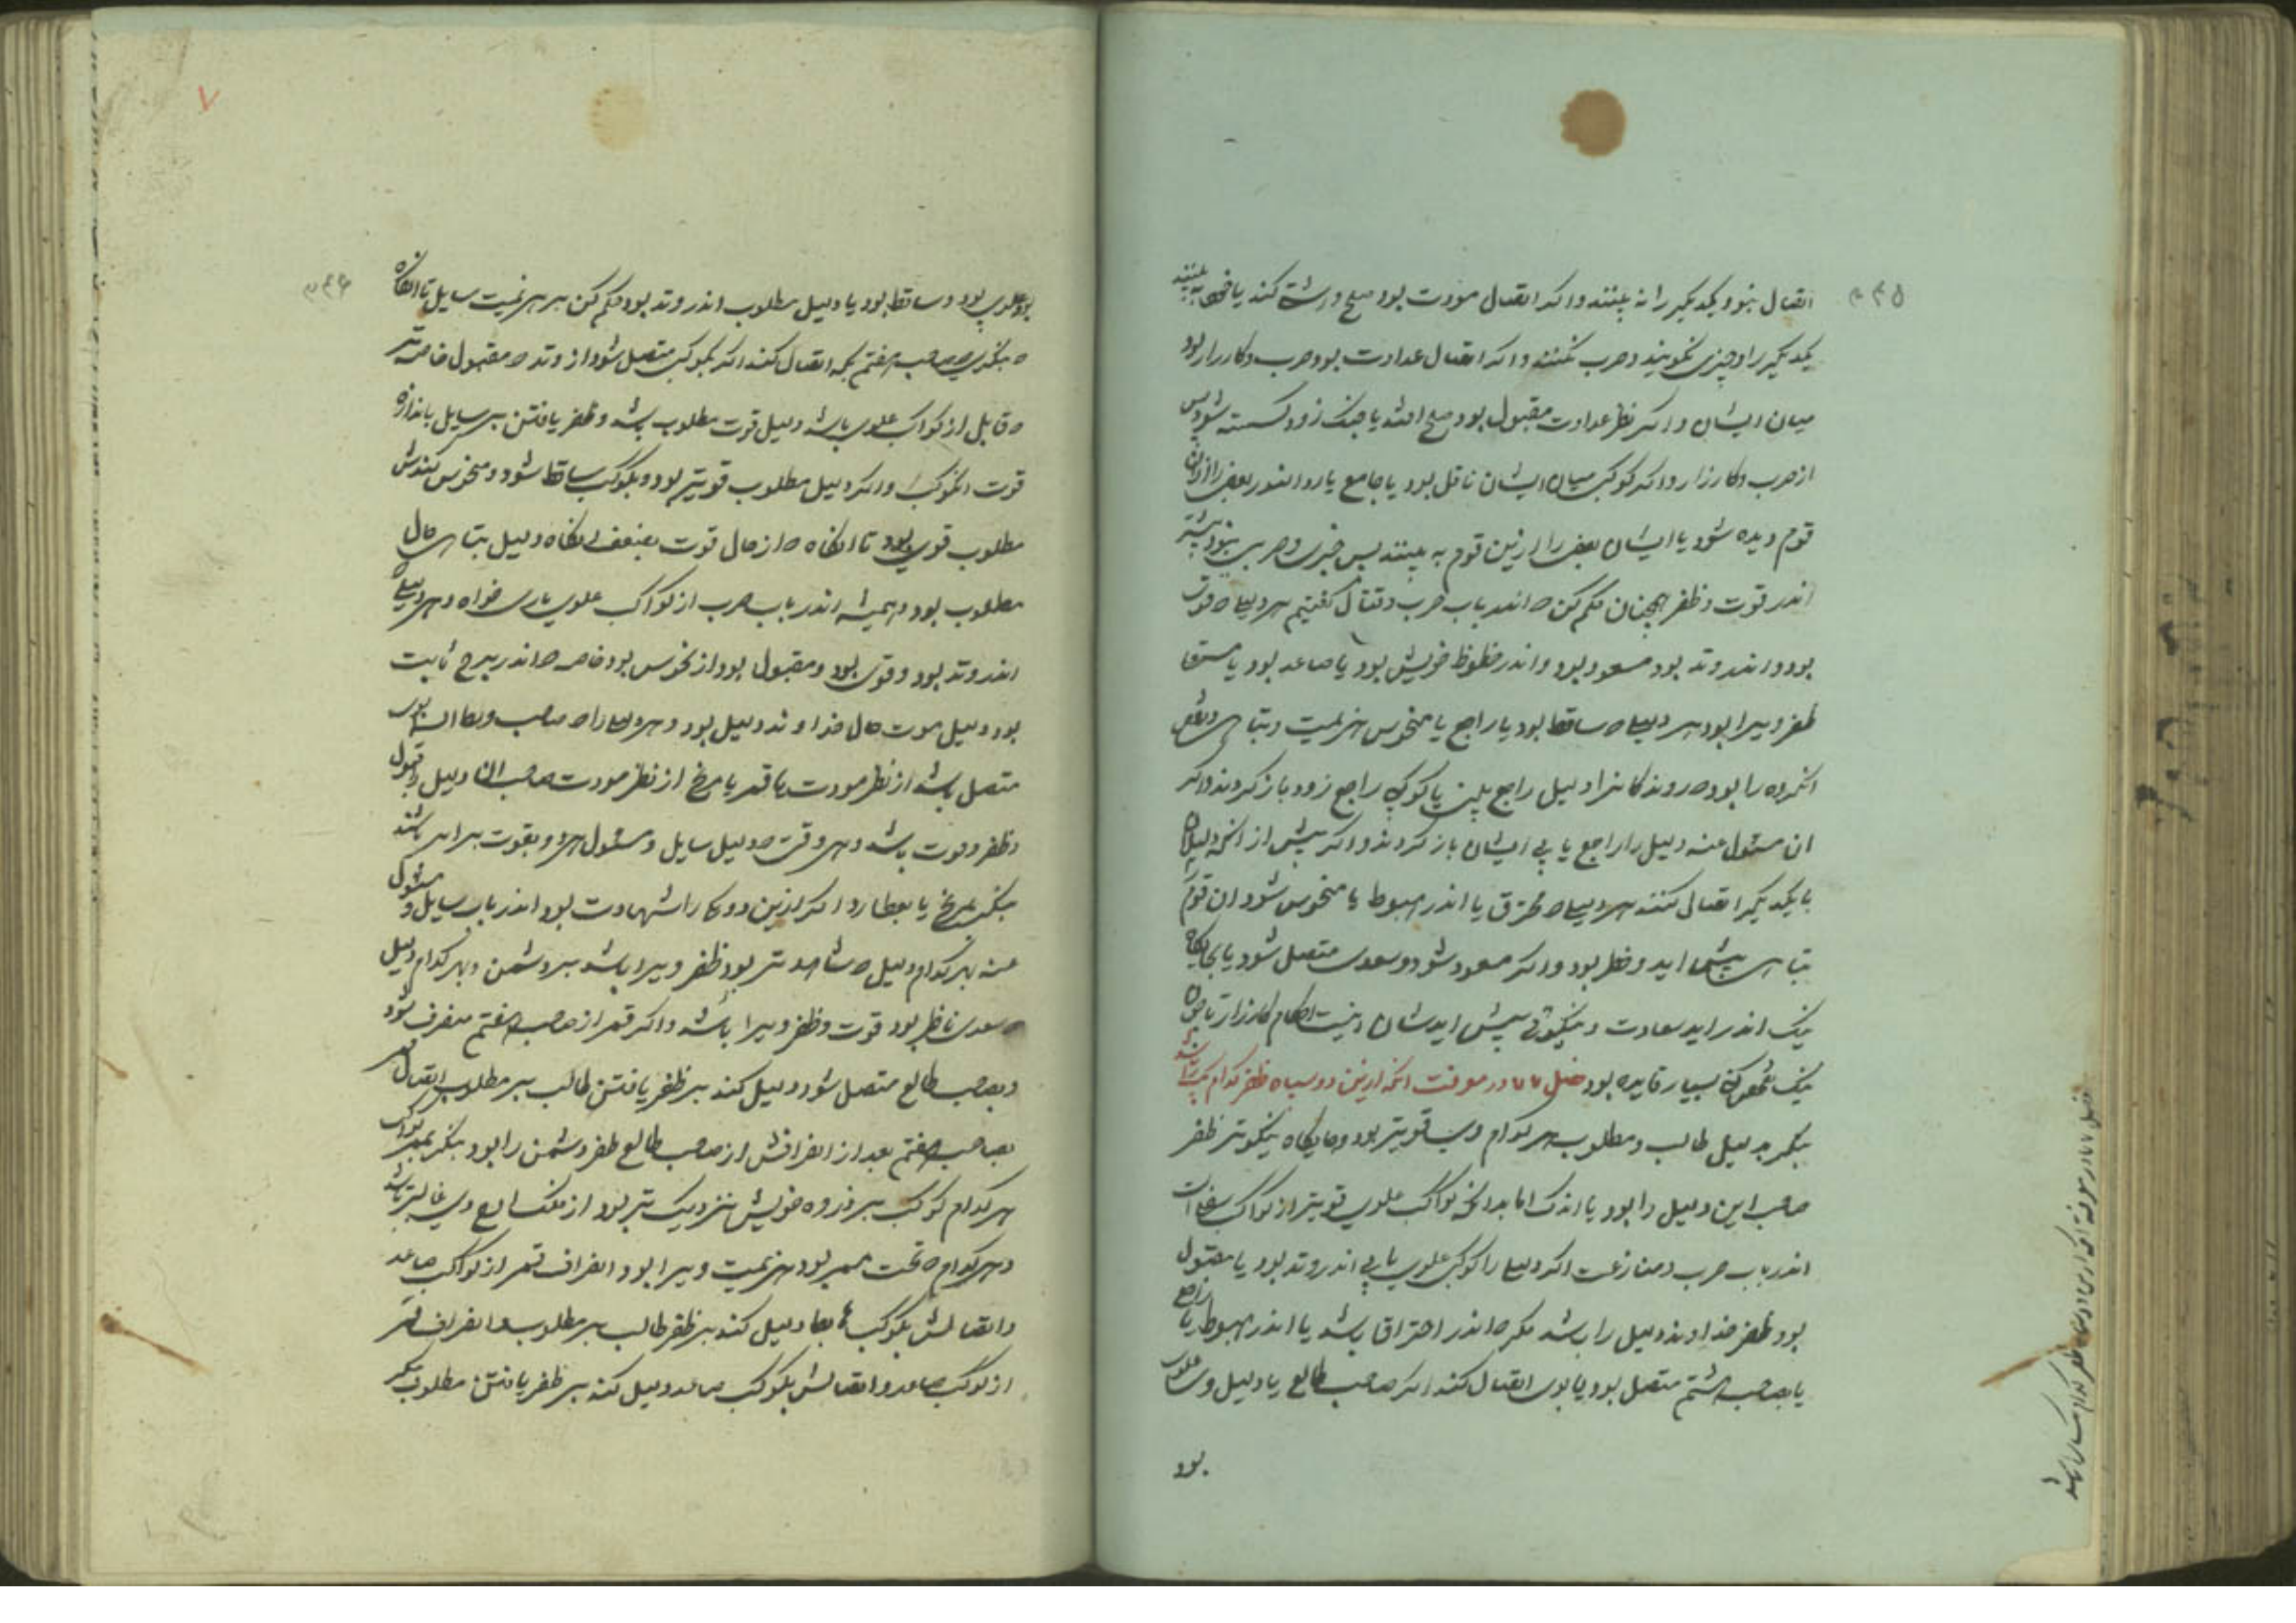 اتصال نبود و یکدیگر را نه بینند و اگر اتصال مودت بود صلح و آشتی کنند یا بینند
یکدیگر را و چیزی نگویند و حرب نکنند و اگر اتصال عداوت بود حرب و کارزار بود
میان ایشان و اگر نظر عداوت مقبول بود صلح افتد یا جنک زود کسسته شود پس
از حرب و کارزار و اگر کوکبی میان ایشان ناقل بود یا جامع یا رد النور بعضی را از ان
قوم دیده شود یا ایشان بعضی را ازین قوم به بینند پس خبری و حربی نبود
اندر قوت و ظفر همچنان حکم کن ه اندر باب حرب و قتال گفتیم هر دلیلی ه قوی
بود و اندر وتد بود مسعود بود و اندر حظوظ خویش بود یا صاعد بود یا مستقیم
ظفر ویرا بود هر دلیلی ه ساقط بود یا راجع یا منحوس هزیمت و تباهی و ضعف
انکروه را بود ه روندکانرا دلیل راجع بینی یا کوکبی راجع زود باز کردند و اگر
ان مسئول عنه دلیل را راجع یابی ایشان باز کردند و اگر پیش از انکه دلیلان
با یکدیگر اتصال کنند هر دلیلی ه محترق یا اندر هبوط یا منحوس شود ان قوم
تباهی پیش اید و خطر بود و اگر مسعود شود و بسعدی متصل شود یا بجایکاه
نیک اندر اید سعادت و نیکوئی پیش ایدشان اینست احکام کارزار
نیک بسیار فایده بود فصل ۷۷ در معرفت انکه ازین دو سپاه ظفر کدام یک را باشد
بنکر بدلیل طالب و مطلوب هر کدام وی قویتر بود و جایگاه نیکوتر ظفر
صاحب این دلیل را بود یا اندک اما بدانکه کواکب علوی قویتر از کواکب سفلی است
اندر باب حرب و منازعت اگر دلیلی را کوکبی علوی یابی اندر وتد بود یا مقبول
بود ظفر خداوند دلیل را باشد مکر ه اندر احتراق باشد یا اندر هبوط یا راجع
یا بصاحب هشتم متصل بود یا بوی اتصال کند اگر صاحب طالع یا دلیل وی علوی
بود
فصل ۷۷ در معرفة انکه ازین دو سپاه ظفر کدام یک را باشد
بود علوی بود و ساقط بود یا دلیل مطلوب اندر وتد بود حکم کن بر هزیمت سایل تا انکاه
ه بنکری ه صاحب هفتم بکه اتصال کند اگر بکوکبی متصل شود از وتد ه مقبول خاصه تر
ه قابل از کواکب علوی باشد دلیل قوت مطلوب باشد و ظفر یافتن بر سایل باندازه
قوت انکوکب و اگر دلیل مطلوب قویتر بود و بکوکب ساقط شود و منحوس کندش
مطلوب قوی بود تا انکاه ه از حال قوت بضعف انکاه دلیل تباهی حال
مطلوب بود و همیشه اندر باب حرب از کواکب علوی یاری خواه و هر دلیلی
اندر وتد بود و قوی بود و مقبول بود از نحوس بود خاصه ه اندر برج ثابت
بود دلیل قوت حال خداوند دلیل بود و هر دلیلی را ه صاحب بوی
متصل باشد از نظر مودت یا قمر یا مریخ از نظر مودت صاحب ان دلیل را قبول
و ظفر و قوت باشد و هر وقتی ه دلیل سایل و مسئول هر دو بقوت برابر باشند
بنکر بمریخ یا بعطارد اگر ازین دو را شهادت بود اندر باب سایل و مسئول
عنه بهر کدام دلیل ه شاهدتر بود ظفر ویرا باشد بر دشمن و بهر کدام دلیل
ه سعدی ناظر بود قوت و ظفر ویرا باشد و اگر قمر از صاحب هفتم منصرف شود
و بصاحب طالع متصل شود دلیل کند بر ظفر یافتن طالب بر مطلوب اتصال قمر
بصاحب هفتم بعد از انصرافش از صاحب طالع ظفر دشمن را بود بنکر بممر کواکب
هر کدام کوکب بر ذروه خویش نزدیک تر بود از فلک اوج وی غالبتر باشد
و هر کدام ه تحت ممر بود هزیمت ویرا بود انصراف قمر از کواکب صاعد
و اتصالش بکوکب هابط دلیل کند بر ظفر طالب بر مطلوب و انصراف قمر
از کوکب صاعد و اتصالش بکوکب صاعد دلیل کند بر ظفر یافتن مطلوب بنکر